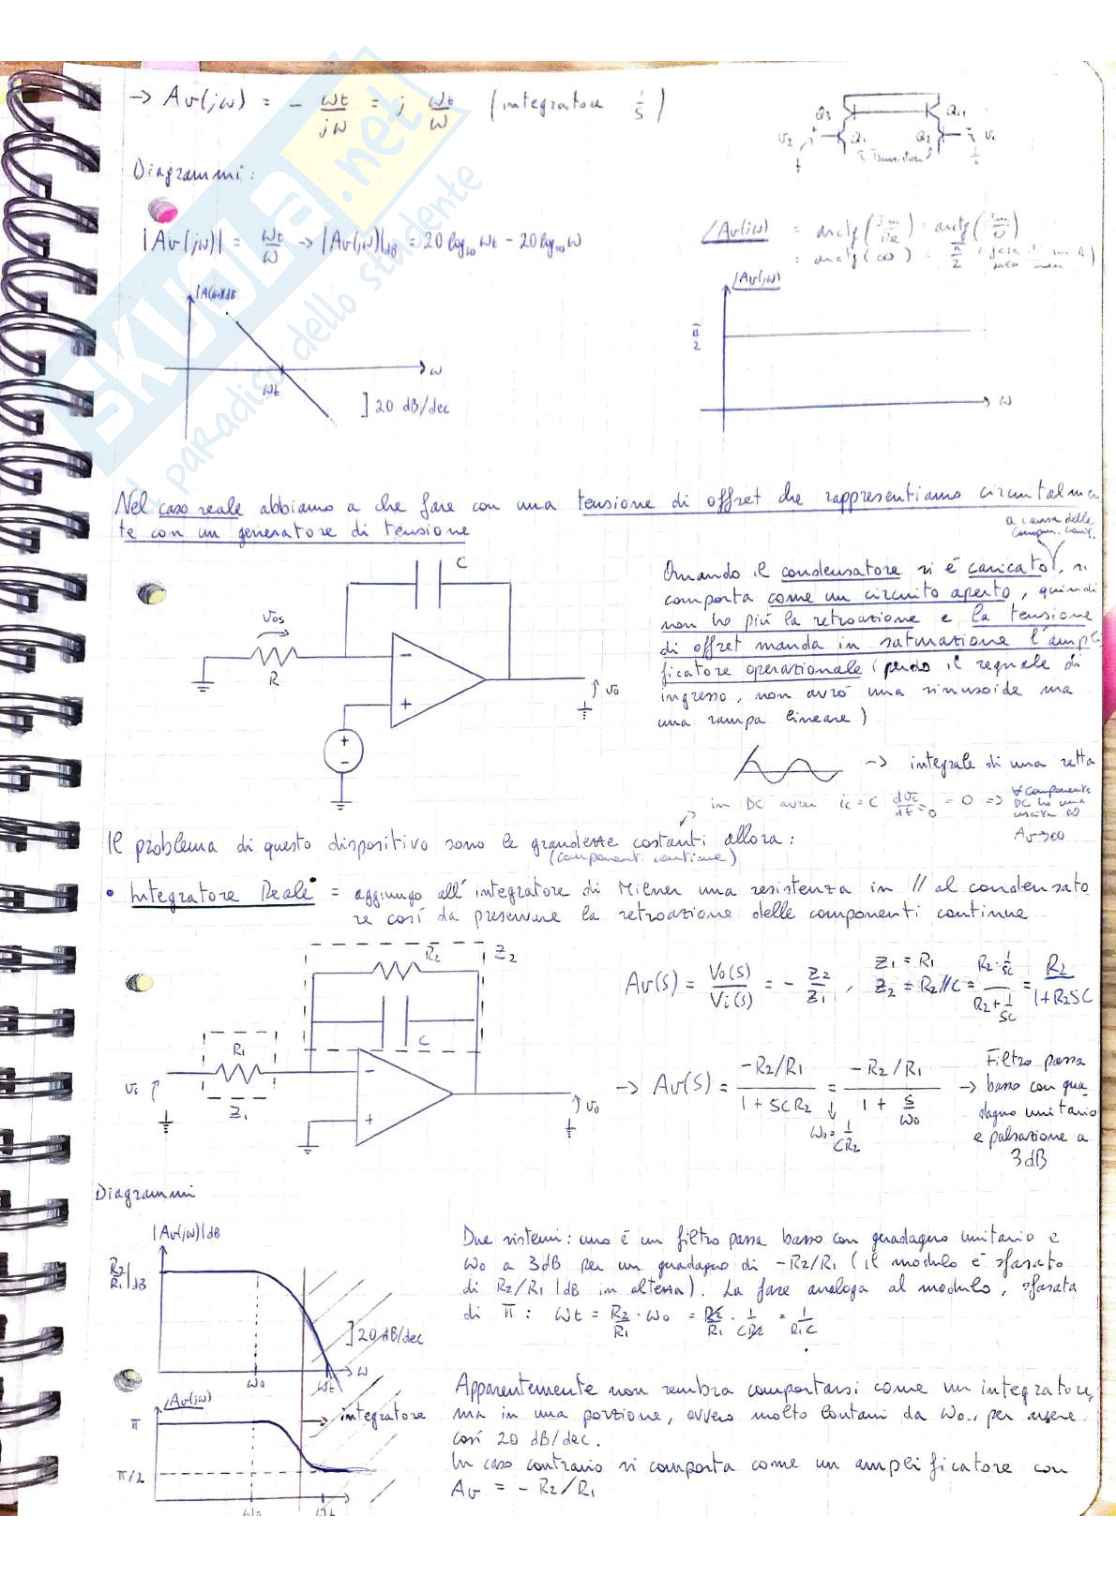 → Av(jω) = - ωt/jω = j ωt/ω (integratore 1/s)
Q3 Q4
v2 Q1 Q2 v1
Diagrammi:
|Av(jω)| = ωt/ω → |Av(jω)|dB = 20log10 ωt - 20log10 ω
∠Av(jω) = arctg(Im/Re) = arctg(
= arctg(∞) = π/2
|A(jω)|dB
ω
ωt
] 20 dB/dec
∠Av(jω)
π/2
ω
Nel caso reale abbiamo a che fare con una tensione di offset che rappresentiamo circuitalmen
te con un generatore di tensione
a causa delle
compon. cont.
C
vos
R
-
+
vo
+
-
Quando il condensatore si è caricato, si
comporta come un circuito aperto, quindi
non ho più la retroazione e la tensione
di offset manda in saturazione l'ampli
ficatore operazionale (perdo il segnale di
ingresso, non avrò una sinusoide ma
una rampa lineare)
→ integrale di una retta
in DC avrei ic = C dvc/dt = 0 ⇒ ∀ componente
DC ho una
uscita ∞
Av→∞
Il problema di questo dispositivo sono le grandezze costanti allora:
(componenti continue)
• Integratore Reale = aggiungo all'integratore di Miller una resistenza in // al condensato
re così da preservare la retroazione delle componenti continue
R2 Z2
C
R1
Z1
vi
-
+
vo
Av(s) = Vo(s)/Vi(s) = - Z2/Z1 , Z1 = R1
Z2 = R2//C = R2·1/sC / R2+1/sC = R2/1+R2SC
→ Av(s) = -R2/R1 / 1+SCR2 = -R2/R1 / 1+ s/ω0 → Filtro passa
basso con gua
dagno unitario
e pulsazione a
3dB
ω0 = 1/CR2
Diagrammi
|Av(jω)|dB
R2/R1|dB
] 20 dB/dec
ω0 ωt ω
∠Av(jω)
π
→ integratore
π/2
ω0 ωt
Due sistemi: uno è un filtro passa basso con guadagno unitario e
ω0 a 3dB per un guadagno di -R2/R1 (il modulo è sfasato
di R2/R1|dB in altezza). La fase analoga al modulo, sfasata
di π: ωt = R2/R1 · ω0 = R2/R1 · 1/CR2 = 1/R1C
Apparentemente non sembra comportarsi come un integratore,
ma in una porzione, ovvero molto lontani da ω0, per essere
così 20 dB/dec.
In caso contrario si comporta come un amplificatore con
Av = - R2/R1
SKUOLA.net
il paradiso dello studente